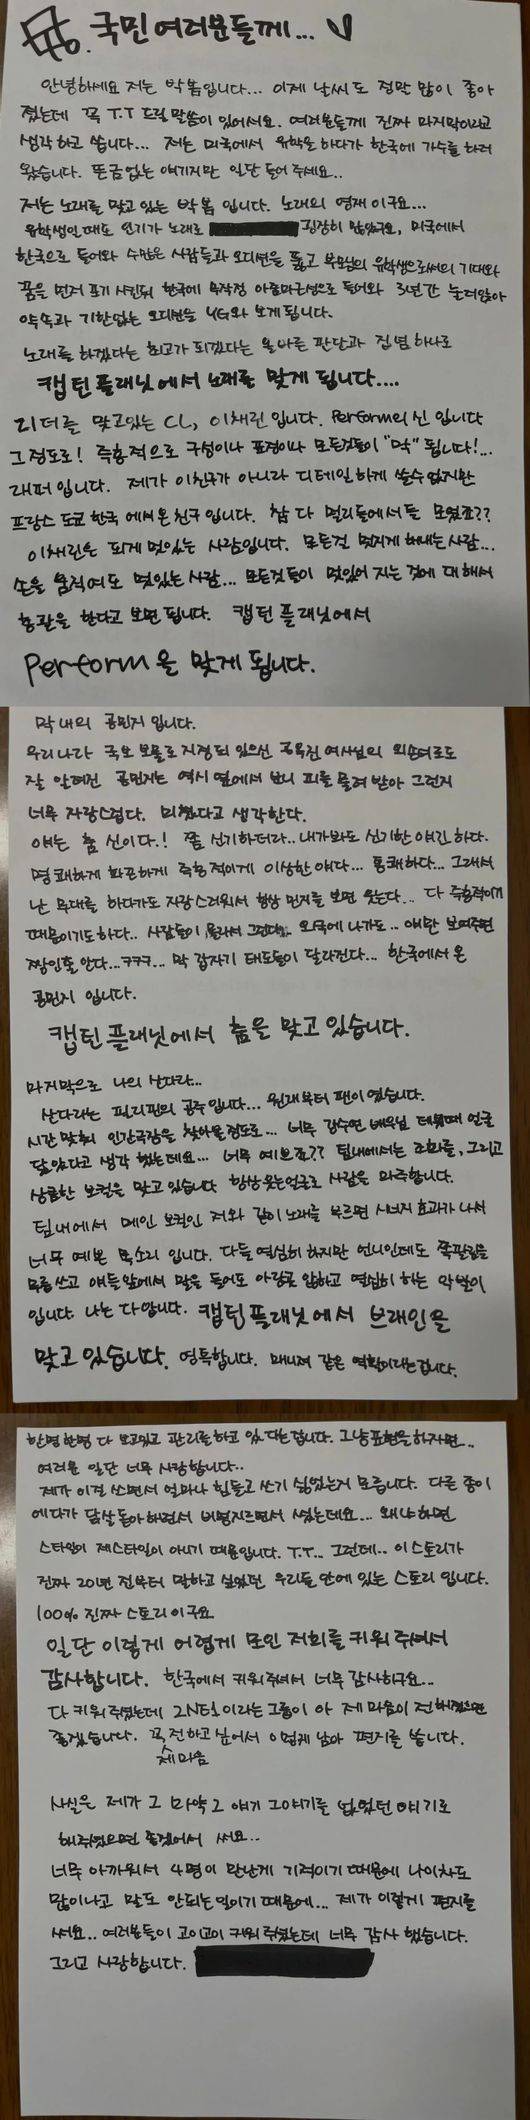 To. 국민여러분들께...
안녕하세요 저는 박봄입니다... 이제 날씨도 정말 많이 좋아
졌는데 꼭 T.T 드릴 말씀이 있어서요. 여러분들께 진짜 마지막이라고
생각하고 씁니다... 저는 미국에서 유학을 하다가 한국에 가수를 하러
왔습니다. 뜬금없는 얘기지만 일단 들어 주세요..
저는 노래를 맞고 있는 박봄 입니다. 노래의 영재 이구요...
유학생인때도 인기가 노래로 굉장히 많았구요, 미국에서
한국으로 들어와 수많은 사람들과 오디션을 뚫고 부모님의 유학생으로써의 기대와
꿈을 먼저 포기 시킨뒤 한국에 무작정 들어와 3년간 눌러앉아
약속과 기한없는 오디션을 YG와 보게 됩니다.
노래를 하겠다는 최고가 되겠다는 올바른 판단과 집념 하나로
캡틴 플래닛에서 노래를 맞게 됩니다....
리더를 맞고있는 CL, 이채린 입니다. Perform의 신 입니다
그 정도로! 즉흥적으로 구성이나 표정이나 모든것들이 "막" 됩니다!...
래퍼 입니다. 제가 이친구가 아니라 디테일하게 쓸수 없지만
프랑스 도쿄 한국 에서 온 친구 입니다. 참 다 멀리들에서들 모였죠??
이채린은 되게 멋있는 사람입니다. 모든걸 멋지게 해내는 사람...
손을 움직여도 멋있는 사람... 모든것들이 멋있어 지는 것에 대해서
총괄을 한다고 보면 됩니다. 캡틴 플래닛에서
Perform을 맞게 됩니다.
막내의 공민지 입니다.
우리나라 국보 보물로 지정되 있으신 공옥진 여사님의 외손녀로도
잘 알려진 공민지는 역시 옆에서 보니 피를 물려 받아 그런지
너무 자랑스럽다. 미쳤다고 생각한다.
얘는 춤 신이다.! 쫌 신기하더라.. 내가봐도 신기한 얘긴 하다.
명쾌하게 화끈하게 즉흥적이게 이상한 얘다... 통쾌하다... 그래서
난 무대를 하다가도 자랑스러워서 항상 민지를 보면 웃는다... 다 즉흥적이기
때문이기도 하다.. 사람들이 몰라서 그런데.. 외국에 나가도.. 얘만 보여주면
짱인줄 안다...ㅋㅋㅋ... 막 갑자기 태도들이 달라진다... 한국에서 온
공민지 입니다.
캡틴 플래닛에서 춤을 맞고 있습니다.
마지막으로 나의 산다라...
산다라는 필리핀의 공주입니다... 원래부터 팬이였습니다.
시간 맞춰 인간극장을 찾아볼 정도로... 너무 배우님 데뷔때 얼굴
닮았다고 생각 했는데요... 너무 예쁘죠?? 팀내에서는 조화를, 그리고
상큼한 보컬을 맞고 있습니다 항상 웃는얼굴로 사람을 마주합니다.
팀내에서 메인 보컬인 저와 같이 노래를 부르면 시너지 효과가 나서
너무 예쁜 목소리 입니다. 다들 열심히 하지만 언니인데도 쪽팔림을
무릅쓰고 얘들 앞에서 말을 들어도 아랑곳 않하고 열심히 하는 악발이
입니다. 나는 다 압니다. 캡틴 플래닛에서 브레인을
맞고 있습니다. 영특합니다. 매니저 같은 역활이라는 겁니다.
한명 한명 다 보고있고 관리를 하고 있다는 겁니다. 그냥 표현을 하자면...
여러분 일단 너무 사랑합니다..
제가 이걸 쓰면서 얼마나 힘들고 쓰기 싫었는거 모릅니다. 다른 종이
에다가 닭살 돋아 하면서 비명지르면서 썼는데요... 왜냐하면
스타일이 제스타일이 아니기 때문입니다. T.T... 그런데.. 이 스토리가
진짜 20년 전부터 말하고 싶었던 우리들 안에 있는 스토리 입니다.
100% 진짜 스토리 이구요
일단 이렇게 어렵게 모인 저희를 키워 주셔서
감사합니다. 한국에서 키워주셔서 너무 감사하구요...
다 키워 주셨는데 2NE1 이라는 그룹이 아 제 마음이 전해졌으면
좋겠습니다. 꼭 제 마음 전하고 싶어서 이렇게 남아 편지를 씁니다.
사실은 제가 그 마약 그 얘기 그얘기를 없었던 얘기로
해주셨으면 좋겠어서 써요..
너무 아까워서 4명이 만난게 기적이기 때문에 나이차도
많이나고 말도 안되는 일이기 때문에... 제가 이렇게 편지를
써요.. 여러분들이 고이고이 키워 주셨는데 너무 감사 했습니다.
그리고 사랑합니다.